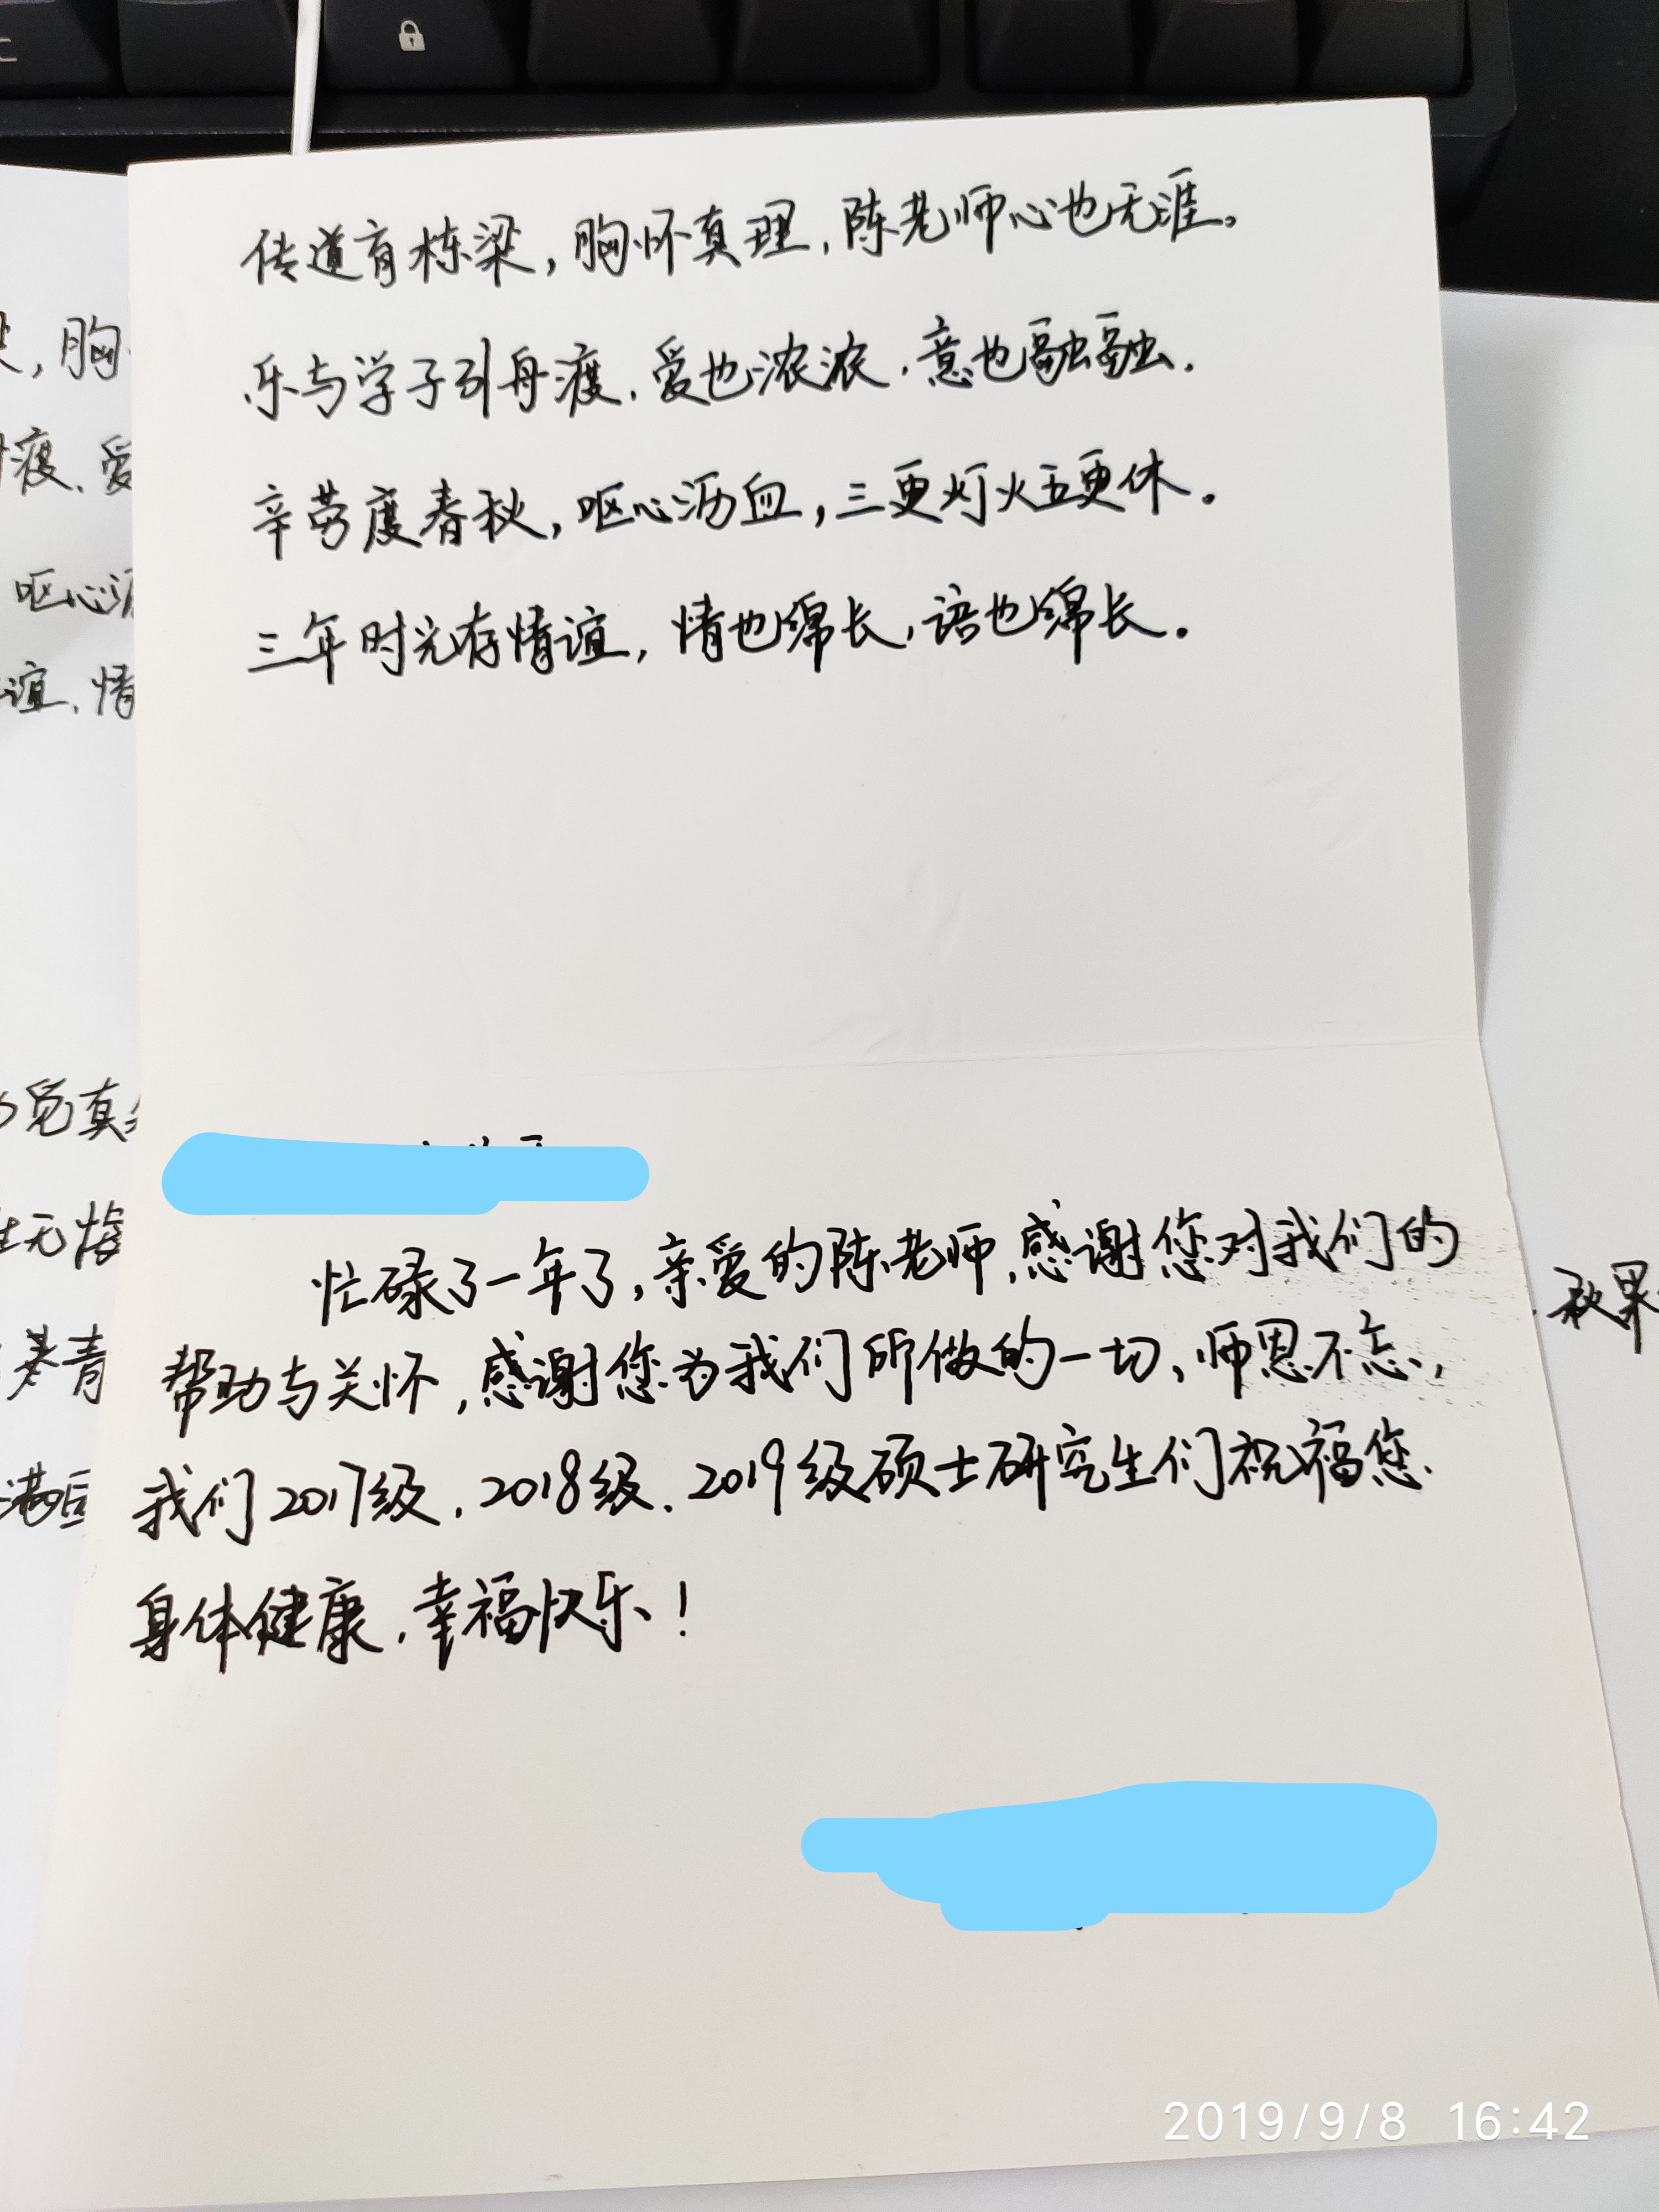 传道有栋梁，胸怀真理，陈老师心也无涯。
乐与学子引舟渡，爱也浓浓，意也融融，
辛劳度春秋，呕心沥血，三更灯火五更休。
三年时光存情谊，情也绵长，语也绵长。
忙碌了一年了，亲爱的陈老师，感谢您对我们的
帮助与关怀，感谢您为我们所做的一切，师恩不忘，
我们2017级，2018级，2019级硕士研究生们祝福您
身体健康，幸福快乐！
，胸
渡，爱
呕心
谊，情
觅真
无悔
青
满园
秋果
2019/9/8 16:42